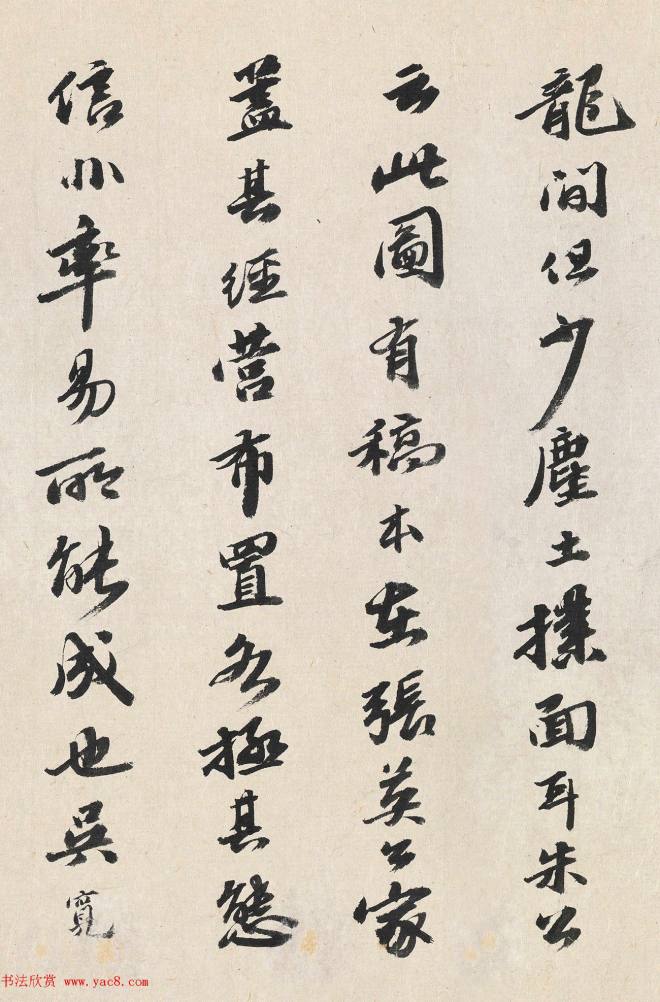 龍間但少塵土撲面耳朱公
云此圖有稿本在張英公家
蓋其經營布置各極其態
信非率易所能成也吳寬
书法欣赏 www.yac8.com